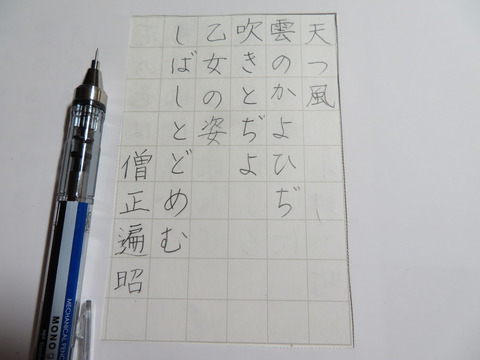 天つ風
雲のかよひぢ
吹きとぢよ
乙女の姿
しばしとどめむ
僧正遍昭
MECHANICAL PENCIL
MONO